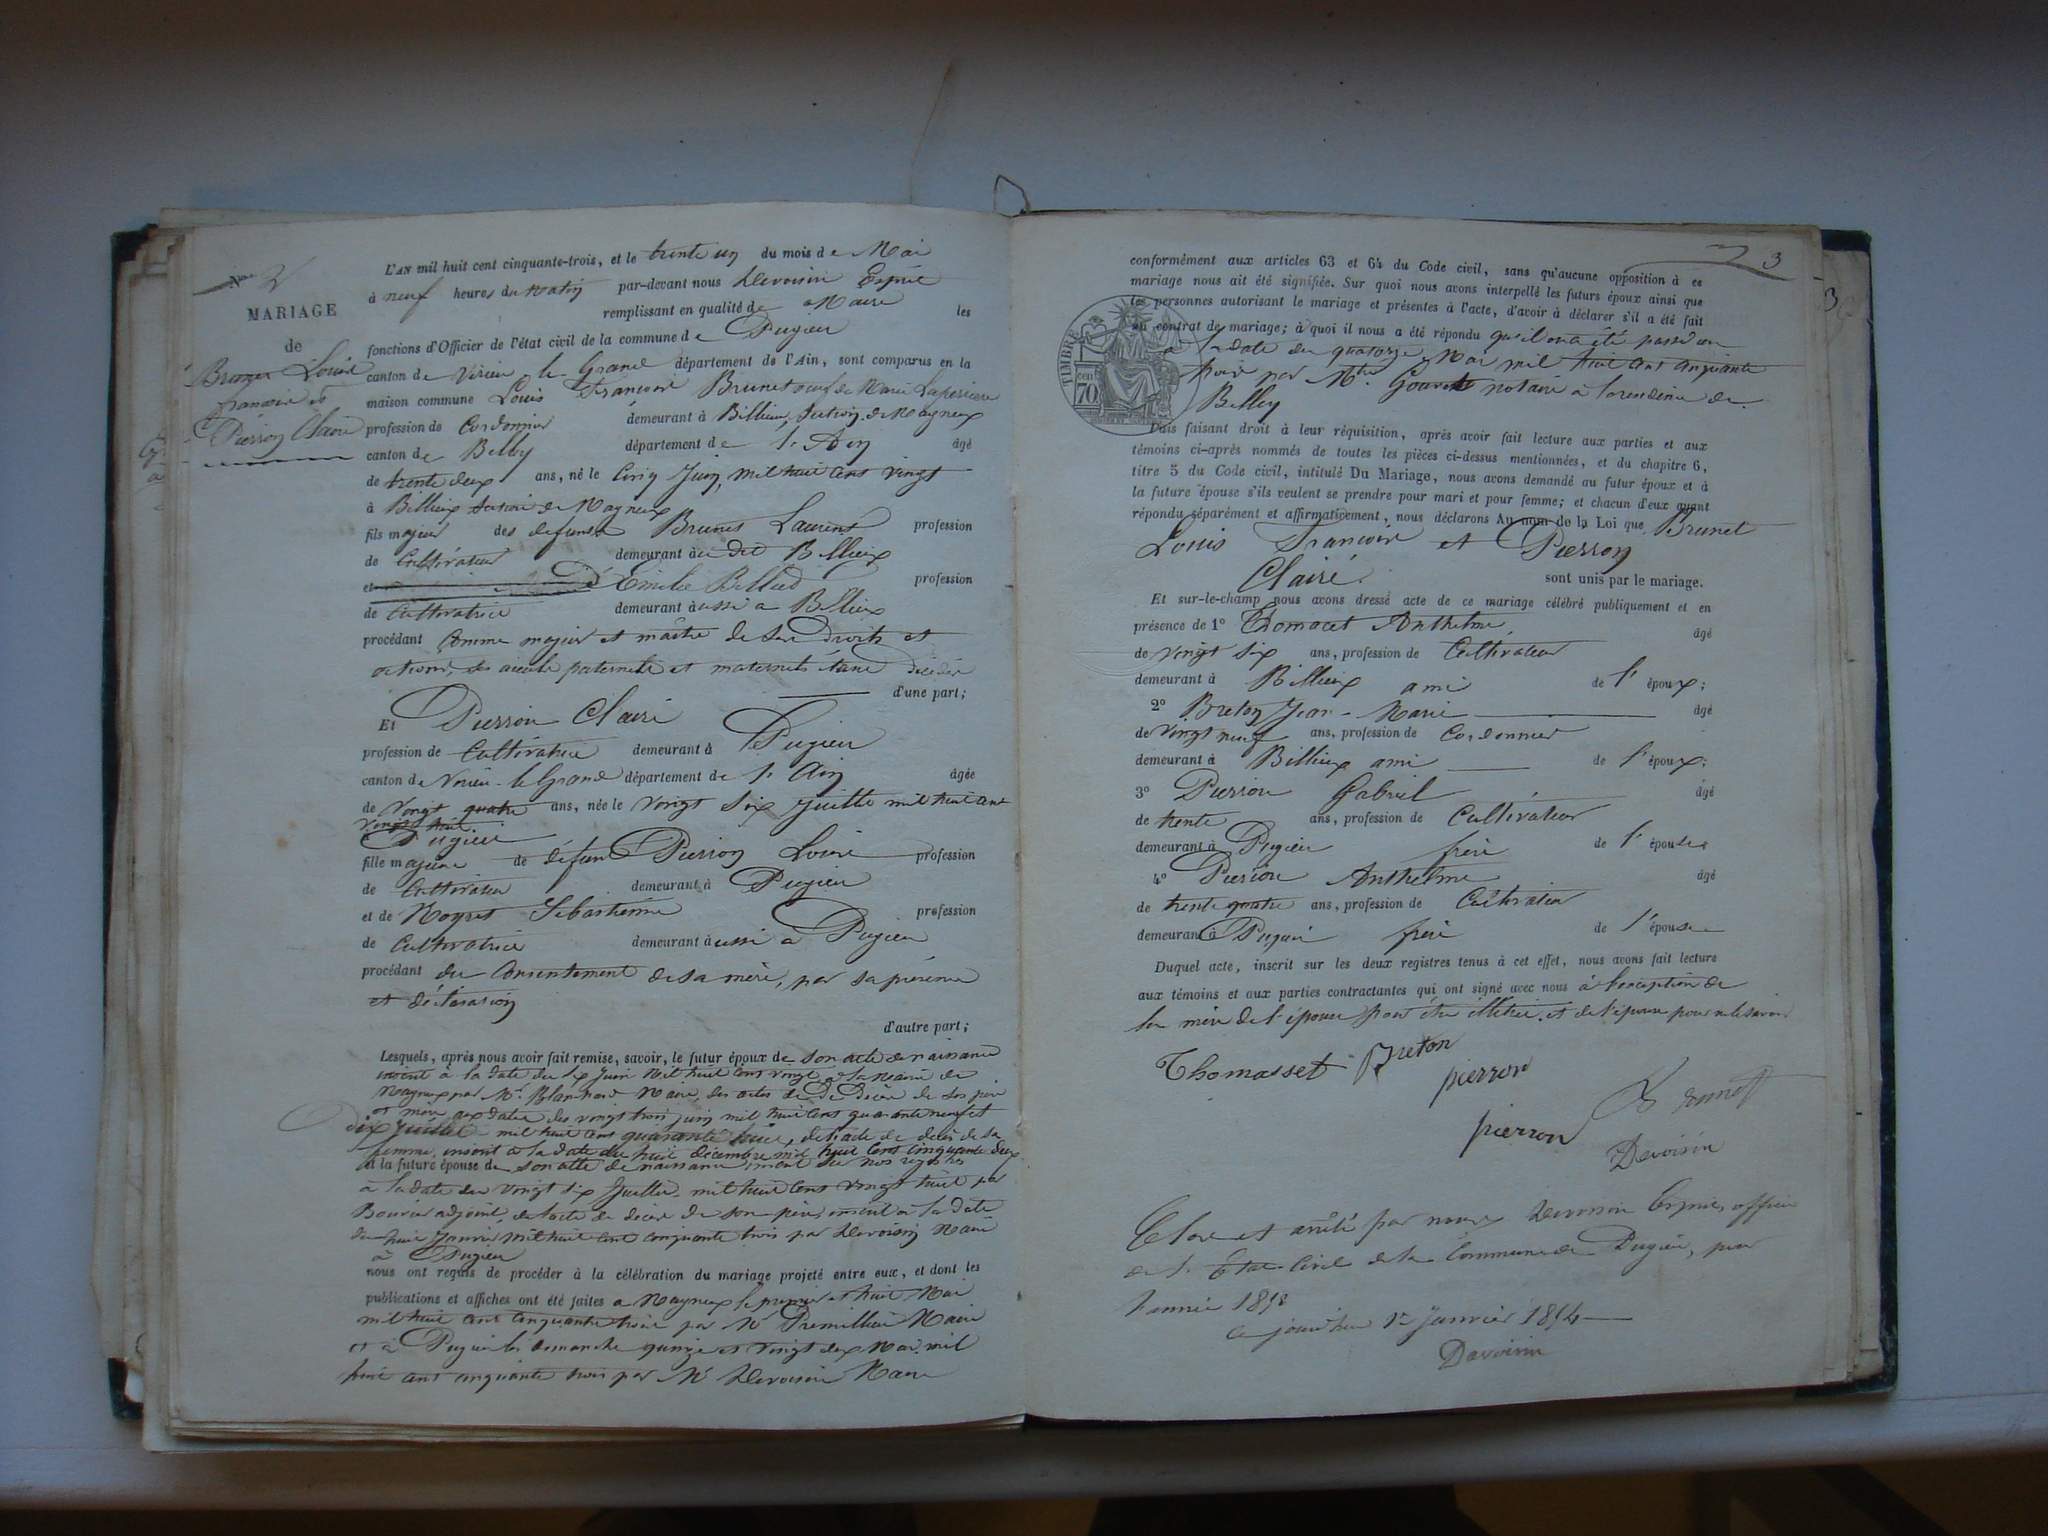 Nº 2
MARIAGE
de
Brunet Louis
françois et
Pierron Claire
L'AN mil huit cent cinquante-trois, et le trente un du mois de Mai
à neuf heures du matin par-devant nous Devoisin Esprit
remplissant en qualité de Maire les
fonctions d'Officier de l'état civil de la commune de Pugieu
canton de Virieu le Grand département de l'Ain, sont comparus en la
maison commune Louis François Brunet veuf de Marie
profession de Cordonnier demeurant à Billieu, section de Magneux
canton de Belley département de l'Ain âgé
de trente deux ans, né le Cinq Juin, mil huit cent vingt
à Billieux section de Magneux
fils majeur des defunts Brunet Laurent profession
de Cultivateur demeurant au dit Billieux
et d'Emilie Billied profession
de Cultivatrice demeurant aussi a Billieux
procédant Comme majeur et maître de ses Droits et
actions, ses aieuls paternels et maternels étant décédés
d'une part;
Et Pierron Claire
profession de Cultivatrice demeurant à Pugieu
canton de Virieu-le-Grand département de l'Ain âgée
de vingt quatre ans, née le vingt six Juillet mil huit cent
vingt huit
à Pugieu
fille majeure de défunt Pierron Louis profession
de Cultivateur demeurant à Pugieu
et de Noyret Sébastienne profession
de Cultivatrice demeurant aussi a Pugieu
procédant du Consentement de sa mère, par sa présence
et déclaration
d'autre part;
Lesquels, après nous avoir fait remise, savoir, le futur époux de son acte de naissance
inscrit à la date du six Juin mil huit cent vingt à la Mairie de
Magneux par Mr Blanchard Maire, des actes de Décès de ses père
et mère aux dates des vingt trois juin mil huit cent quarante neuf et
dix Juillet mil huit cent quarante huit, de l'acte de décès de sa
femme inscrit à la date du huit décembre mil huit cent cinquante deux
et la future épouse de son acte de naissance inscrit sur nos registres
à la date du vingt six Juillet mil huit cent vingt huit par
Bouvier adjoint, de l'acte de décès de son père, inscrit à la date
du huit Janvier mil huit cent cinquante trois par Devoisin Maire
à Pugieu
nous ont requis de procéder à la célébration du mariage projeté entre eux, et dont les
publications et affiches ont été faites a Magneux le premier et huit Mai
mil huit cent cinquante trois par Mr Premillieu Maire
et à Pugieu les dimanche quinze et vingt deux Mai mil
huit cent cinquante trois par Mr Devoisin Maire
3
conformément aux articles 63 et 64 du Code civil, sans qu'aucune opposition à ce
mariage nous ait été signifiée. Sur quoi nous avons interpellé les futurs époux ainsi que
les personnes autorisant le mariage et présentes à l'acte, d'avoir à déclarer s'il a été fait
un contrat de mariage; à quoi il nous a été répondu qu'il en a été passé un
à la date du quatorze Mai mil huit cent cinquante
trois par Mtre notaire à la résidence de
Belley
TIMBRE
70
Puis faisant droit à leur réquisition, après avoir fait lecture aux parties et aux
témoins ci-après nommés de toutes les pièces ci-dessus mentionnées, et du chapitre 6,
titre 5 du Code civil, intitulé Du Mariage, nous avons demandé au futur époux et à
la future épouse s'ils veulent se prendre pour mari et pour femme; et chacun d'eux ayant
répondu séparément et affirmativement, nous déclarons Au nom de la Loi que Brunet
Louis François et Pierron
Claire sont unis par le mariage.
Et sur-le-champ nous avons dressé acte de ce mariage célébré publiquement et en
présence de 1º Thomacet Anthelme âgé
de vingt six ans, profession de Cultivateur
demeurant à Billieux ami de l'époux;
2º Breton Jean-Marie âgé
de vingt neuf ans, profession de Cordonnier
demeurant à Billieux ami de l'époux;
3º Pierron Gabriel âgé
de trente ans, profession de Cultivateur
demeurant à Pugieu frère de l'épouse
4º Pierron Anthelme âgé
de trente quatre ans, profession de Cultivateur
demeurant à Pugieu frère de l'épouse
Duquel acte, inscrit sur les deux registres tenus à cet effet, nous avons fait lecture
aux témoins et aux parties contractantes qui ont signé avec nous à l'exception de
la mère de l'épouse pour être illétrée et de l'épouse pour ne le savoir
Thomasset Breton
pierron
Brunet
pierron
Devoisin
Clos et arrêté par nous Devoisin Esprit, officier
de l'Etat-Civil de la Commune de Pugieu, pour
l'année 1853
ce jourd'hui 1er Janvier 1854
Devoisin